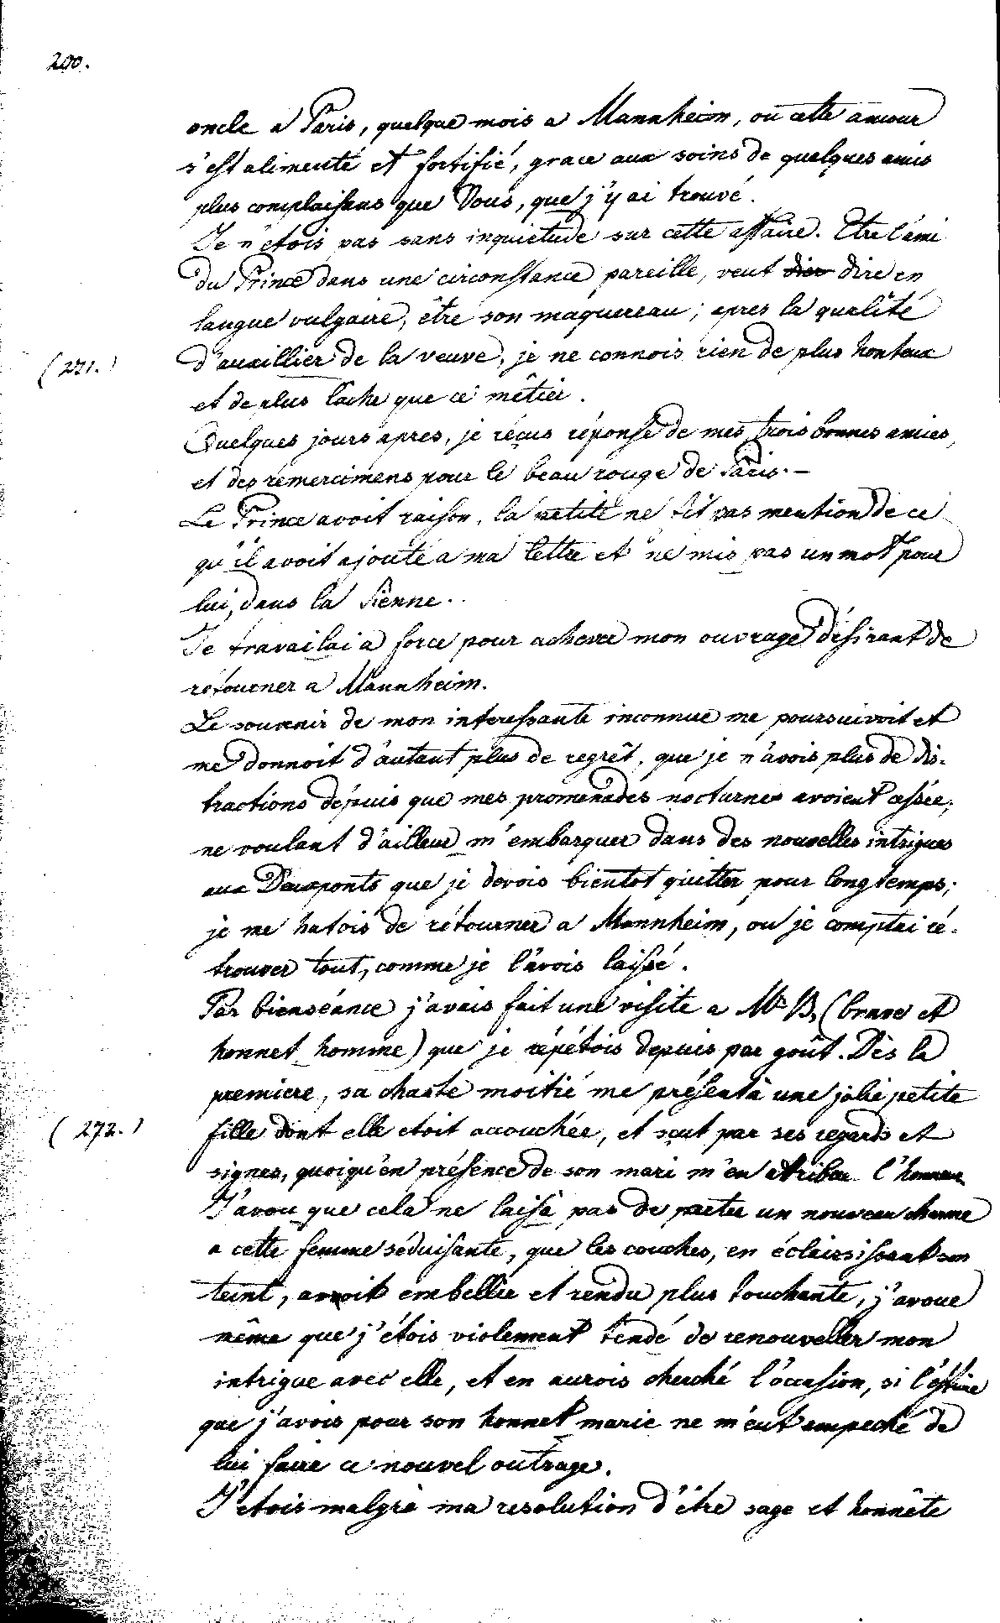 200.
oncle a Paris, quelque mois a Mannheim, ou cette amour
s'est alimenté et fortifié, grace aux soins de quelques amis
plus complaisans que Vous, que j'y ai trouvé.
Je n'étois pas sans inquiétude sur cette affaire. Etre l'ami
du Prince dans une circonstance pareille, veut dier dire en
langue vulgaire, être son maquereau; apres la qualité
(271.) d'auxillier de la veuve, je ne connois rien de plus honteux
et de plus lâche que ce mêtier.
Quelques jours apres, je reçus réponse de mes trois bonnes amies,
et des remercimens pour le beau rouge de Paris. —
Le Prince avoit raison, la petite ne fit pas mention de ce
qu'il avoit ajouté a ma lettre et ne mis pas un mot pour
lui, dans la Sienne..
Je travailai a force pour achever mon ouvrage désirant de
rétourner a Mannheim.
Le souvenir de mon interessante inconnue me poursuivoit et
me donnoit d'autant plus de regrêt, que je n'avois plus de dis-
tractions dépuis que mes promenades nocturnes avoient cessée;
ne voulant d'ailleur m'embarquer dans des nouvelles intrigues
aux Deuxponts que je devois bientot quitter pour longtemps;
je me hatois de rétourner a Mannheim, ou je comptai ré-
trouver tout, comme je l'avois laissé.
Par bienséance j'avais fait une visite a Mr B, (brave et
honnet homme) que je répétois depuis par goût. Dès la
premiere, sa chaste moitié me présenta une jolie petite
(272.) fille dont elle etoit accouchée, et sçut par ses regards et
signes, quoiqu'en présence de son mari m'en atribuer l'honneur
J'avou que cela ne laisa pas de preter un nouveau charme
a cette femme séduisante, que les couches, en éclaircissant son
teint, avoit embellie et rendu plus touchante, j'avoue
même que j'étois violement tendé de renouveller mon
intrigue avec elle, et en aurois cherché l'occasion, si l'éstime
que j'avois pour son honnet marie ne m'eut empeché de
lui faire ce nouvel outrage.
J'etois malgré ma resolution d'être sage et honnête